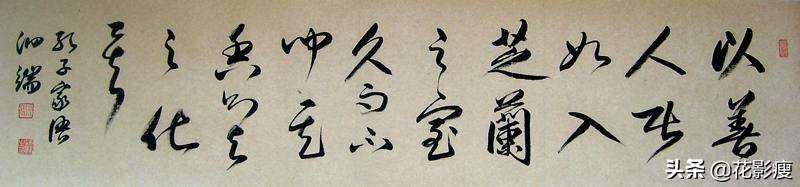 以善
人居
如入
芝蘭
之室
久而不
聞其
香即与
之化
矣
孔子家语
头条 @花影瘦